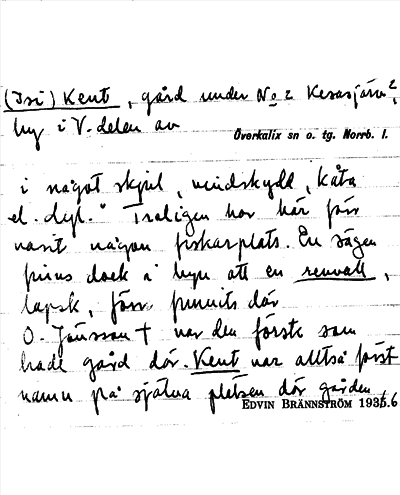 (Isi) Kent, gård under No 2 Kesasjärv 2,
by i V. delen av
Överkalix sn o. tg. Norrb. l.
i något skjul, vindskydd, kåta
el. dyl." Troligen har här förr
varit någon fiskarplats. En sägen
finns dock i byn att en renvall,
lapsk, förr funnits där
O. Jönsson † var den förste som
hade gård där. Kent var alltså först
namn på själva platsen där gården
EDVIN BRÄNNSTRÖM 1935.6